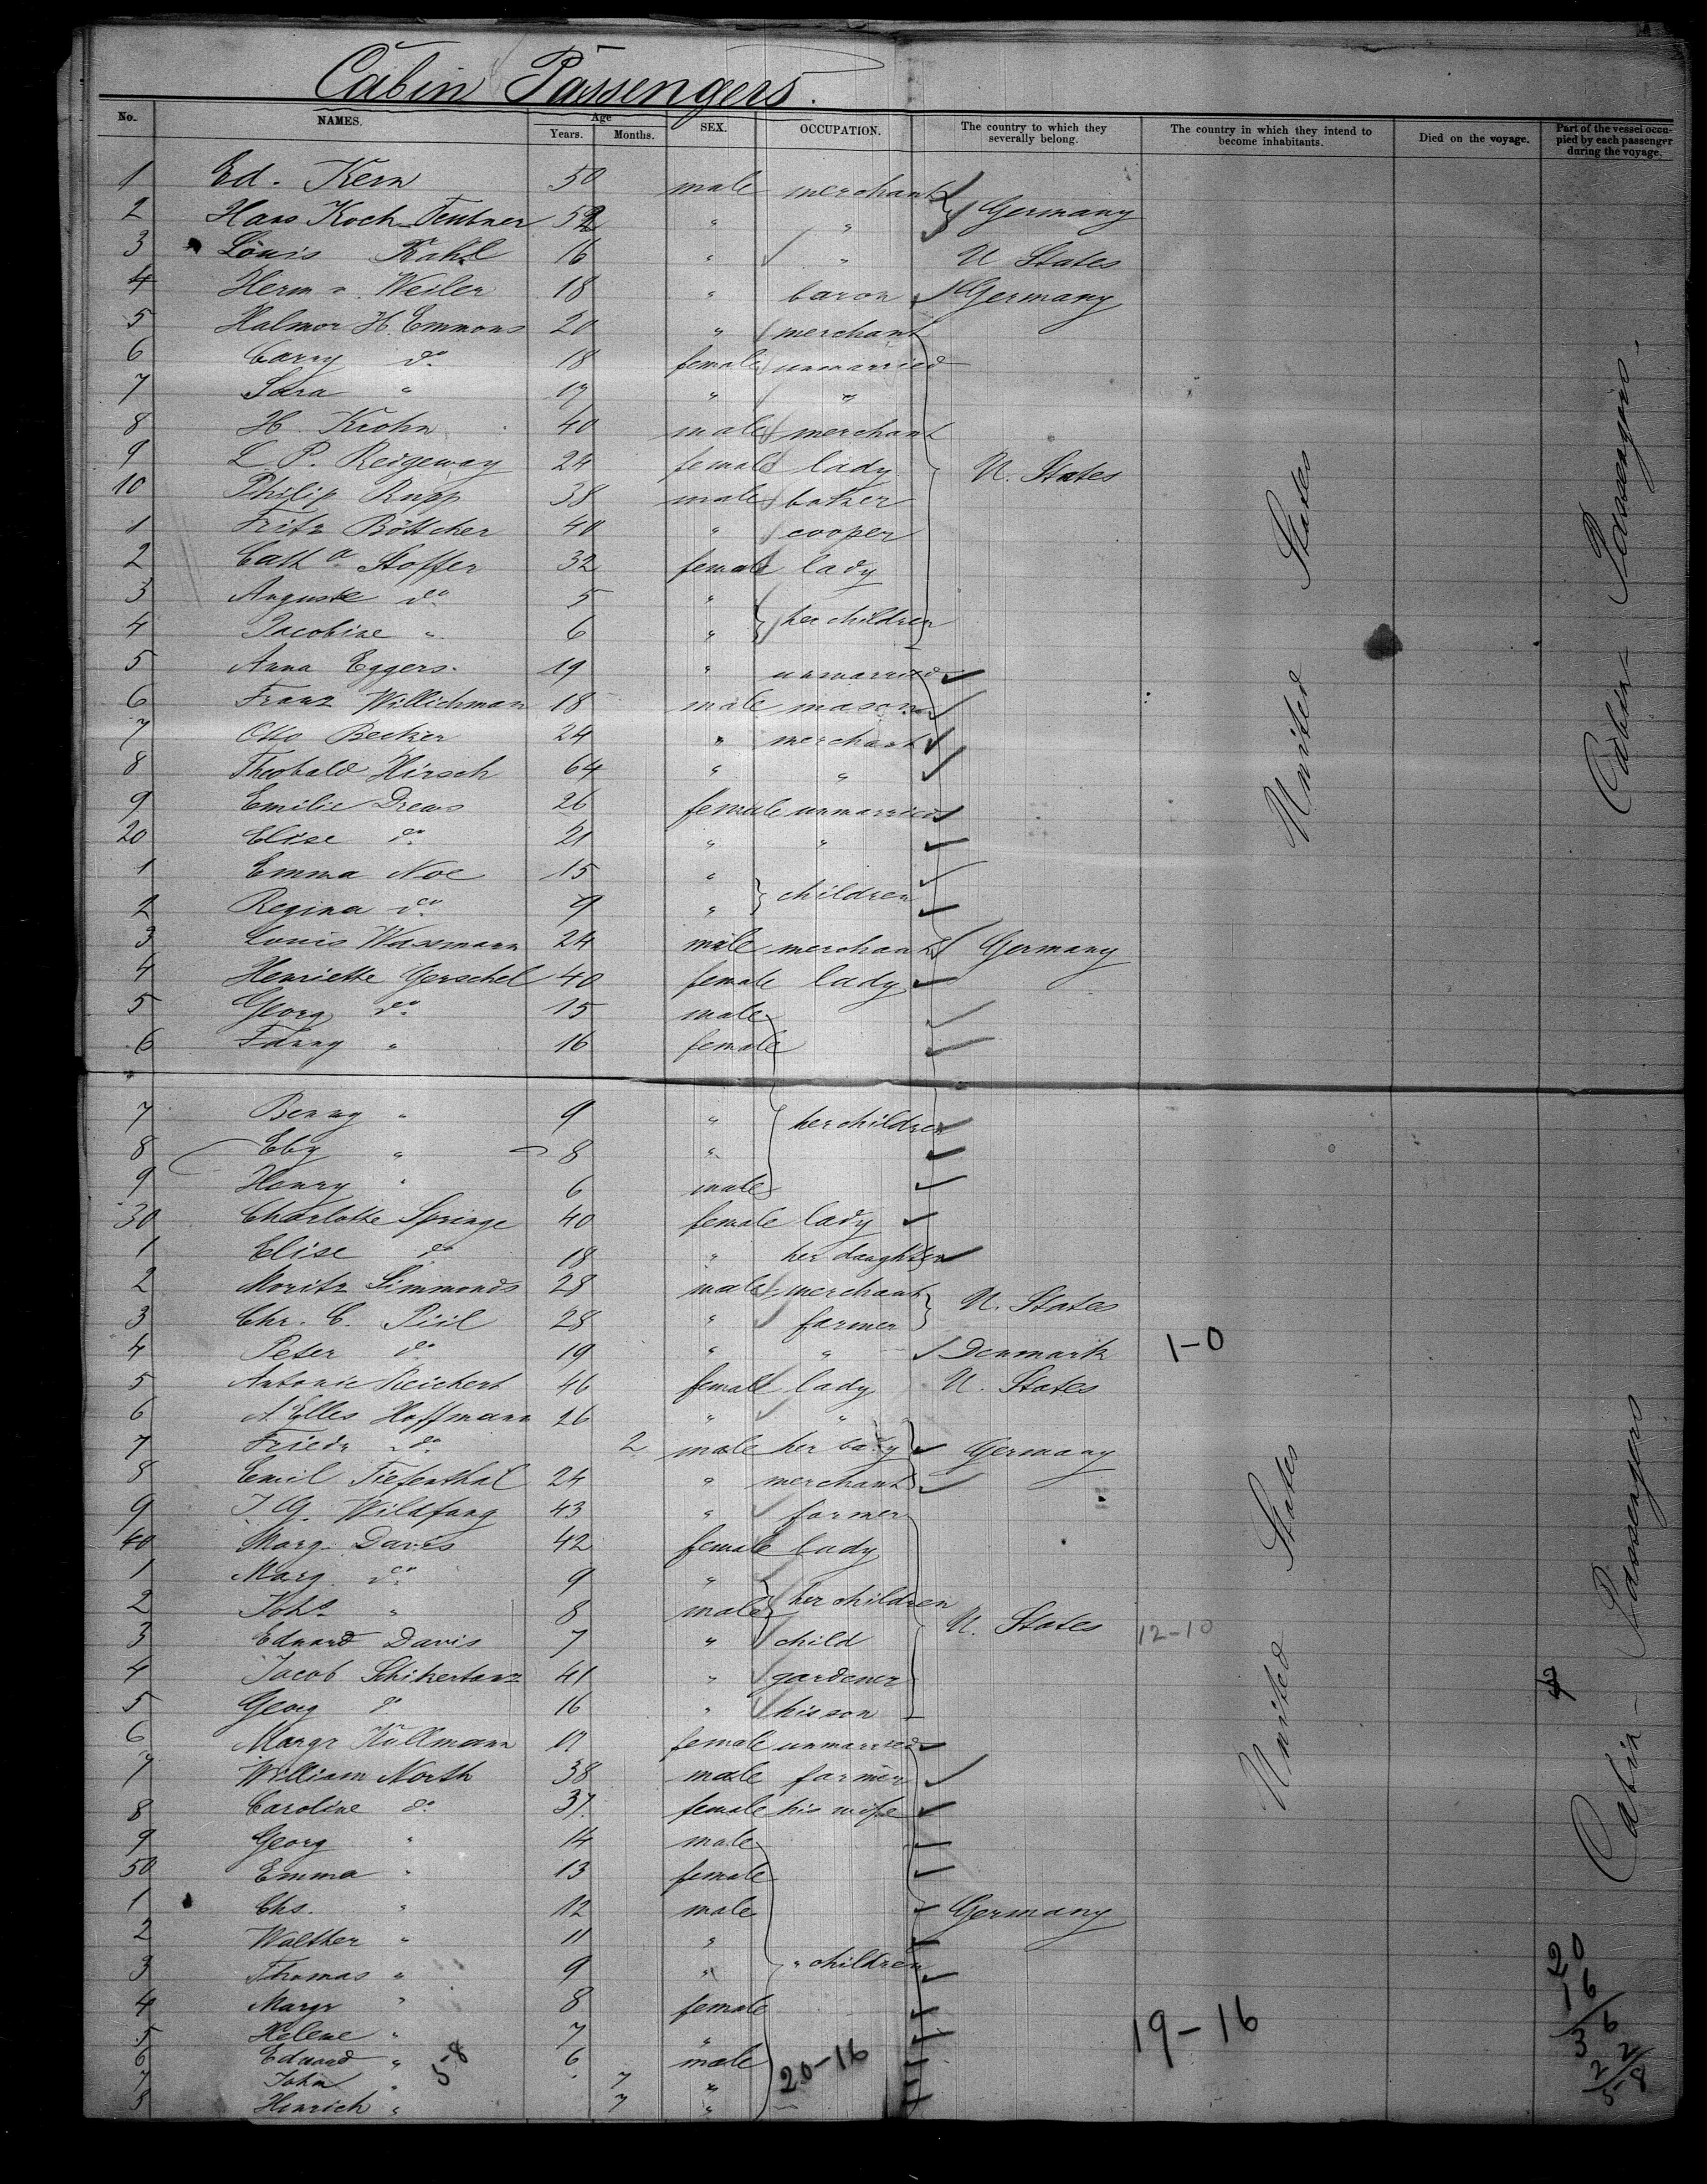 Cabin Passengers.
No. NAMES. Age Years. Months. SEX. OCCUPATION. The country to which they severally belong. The country in which they intend to become inhabitants. Died on the voyage. Part of the vessel occupied by each passenger during the voyage.
1 Ed. Kern 50 male merchant
2 Hans Koch-Teubner 52 " " Germany
3 Louis Kahl 16 " " U States
4 Herm v. Weiler 18 " baron Germany
5 Halmor H. Emmons 20 " merchant
6 Carry do. 18 female unmarried
7 Sara " 17 " "
8 H. Krohn 40 male merchant
9 L. P. Reigeway 24 female lady U. States
10 Philip Rupp 38 male baker
1 Fritz Böttcher 40 " cooper
2 Cath a Stoffer 32 female lady
3 Auguste do. 5 "
4 Jacobine " 6 " her children
5 Anna Eggers. 19 " unmarried
6 Franz Willichman 18 male mason
7 Otto Becker 24 " merchant
8 Theobald Hirsch 64 " "
9 Emilie Drews 26 female unmarried
20 Elise do. 21 " "
1 Emma Noe 15 "
2 Regina do. 9 " children
3 Louis Wassmann 24 male merchant Germany
4 Henriette Gerschel 40 female lady
5 Georg do. 15 male
6 Fanny " 16 female
7 Benny " 9 " her children
8 Eby " 8 "
9 Henry " 6 male
30 Charlotte Springe 40 female lady
1 Elise do 18 " her daughter
2 Moritz Simmonds 28 male merchant U. States
3 Chr. C. Piil 28 " farmer
4 Peter do 19 " " Denmark 1-0
5 Antonie Reichert 46 female lady U. States
6 A. Elles Hoffmann 26 " "
7 Friedr do. 2 male her baby Germany
8 Emil Tiefenthal 24 " merchant
9 J. G. Wildfang 43 " farmer
40 Marg. Davis 42 female lady
1 Marg. do. 9 "
2 Johs " 8 male her children
3 Eduard Davis 7 " child U. States 12-10
4 Jacob Schikertanz 41 " gardener
5 Georg do 16 " his son
6 Margr Kullmann 17 female unmarried
7 William North 38 male farmer
8 Caroline do. 37. female his wife
9 Georg " 14 male
50 Emma " 13 female
1 Chs. " 12 male Germany
2 Walther " 11 "
3 Thomas " 9 " " children
4 Margr " 8 female
5 Helene " 7 " 19-16
6 Eduard " 6 male
7 John " 7 " 20-16
8 Hinrich " 7 "
58
United States
United States
Cabin Passengers.
Cabin-Passengers
20
16
36
22
58